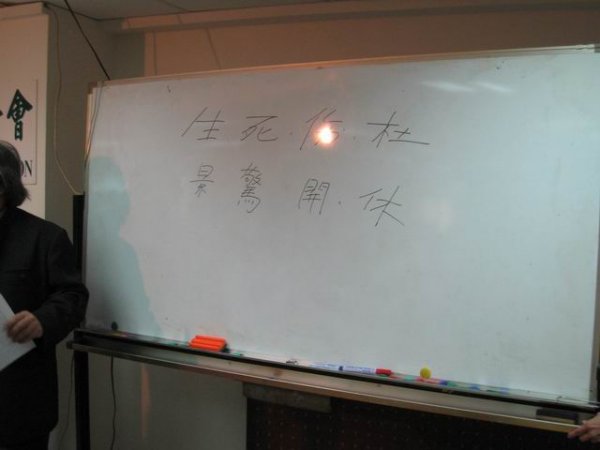 會
ON
生 死.伤.杜
景 驚 開.休